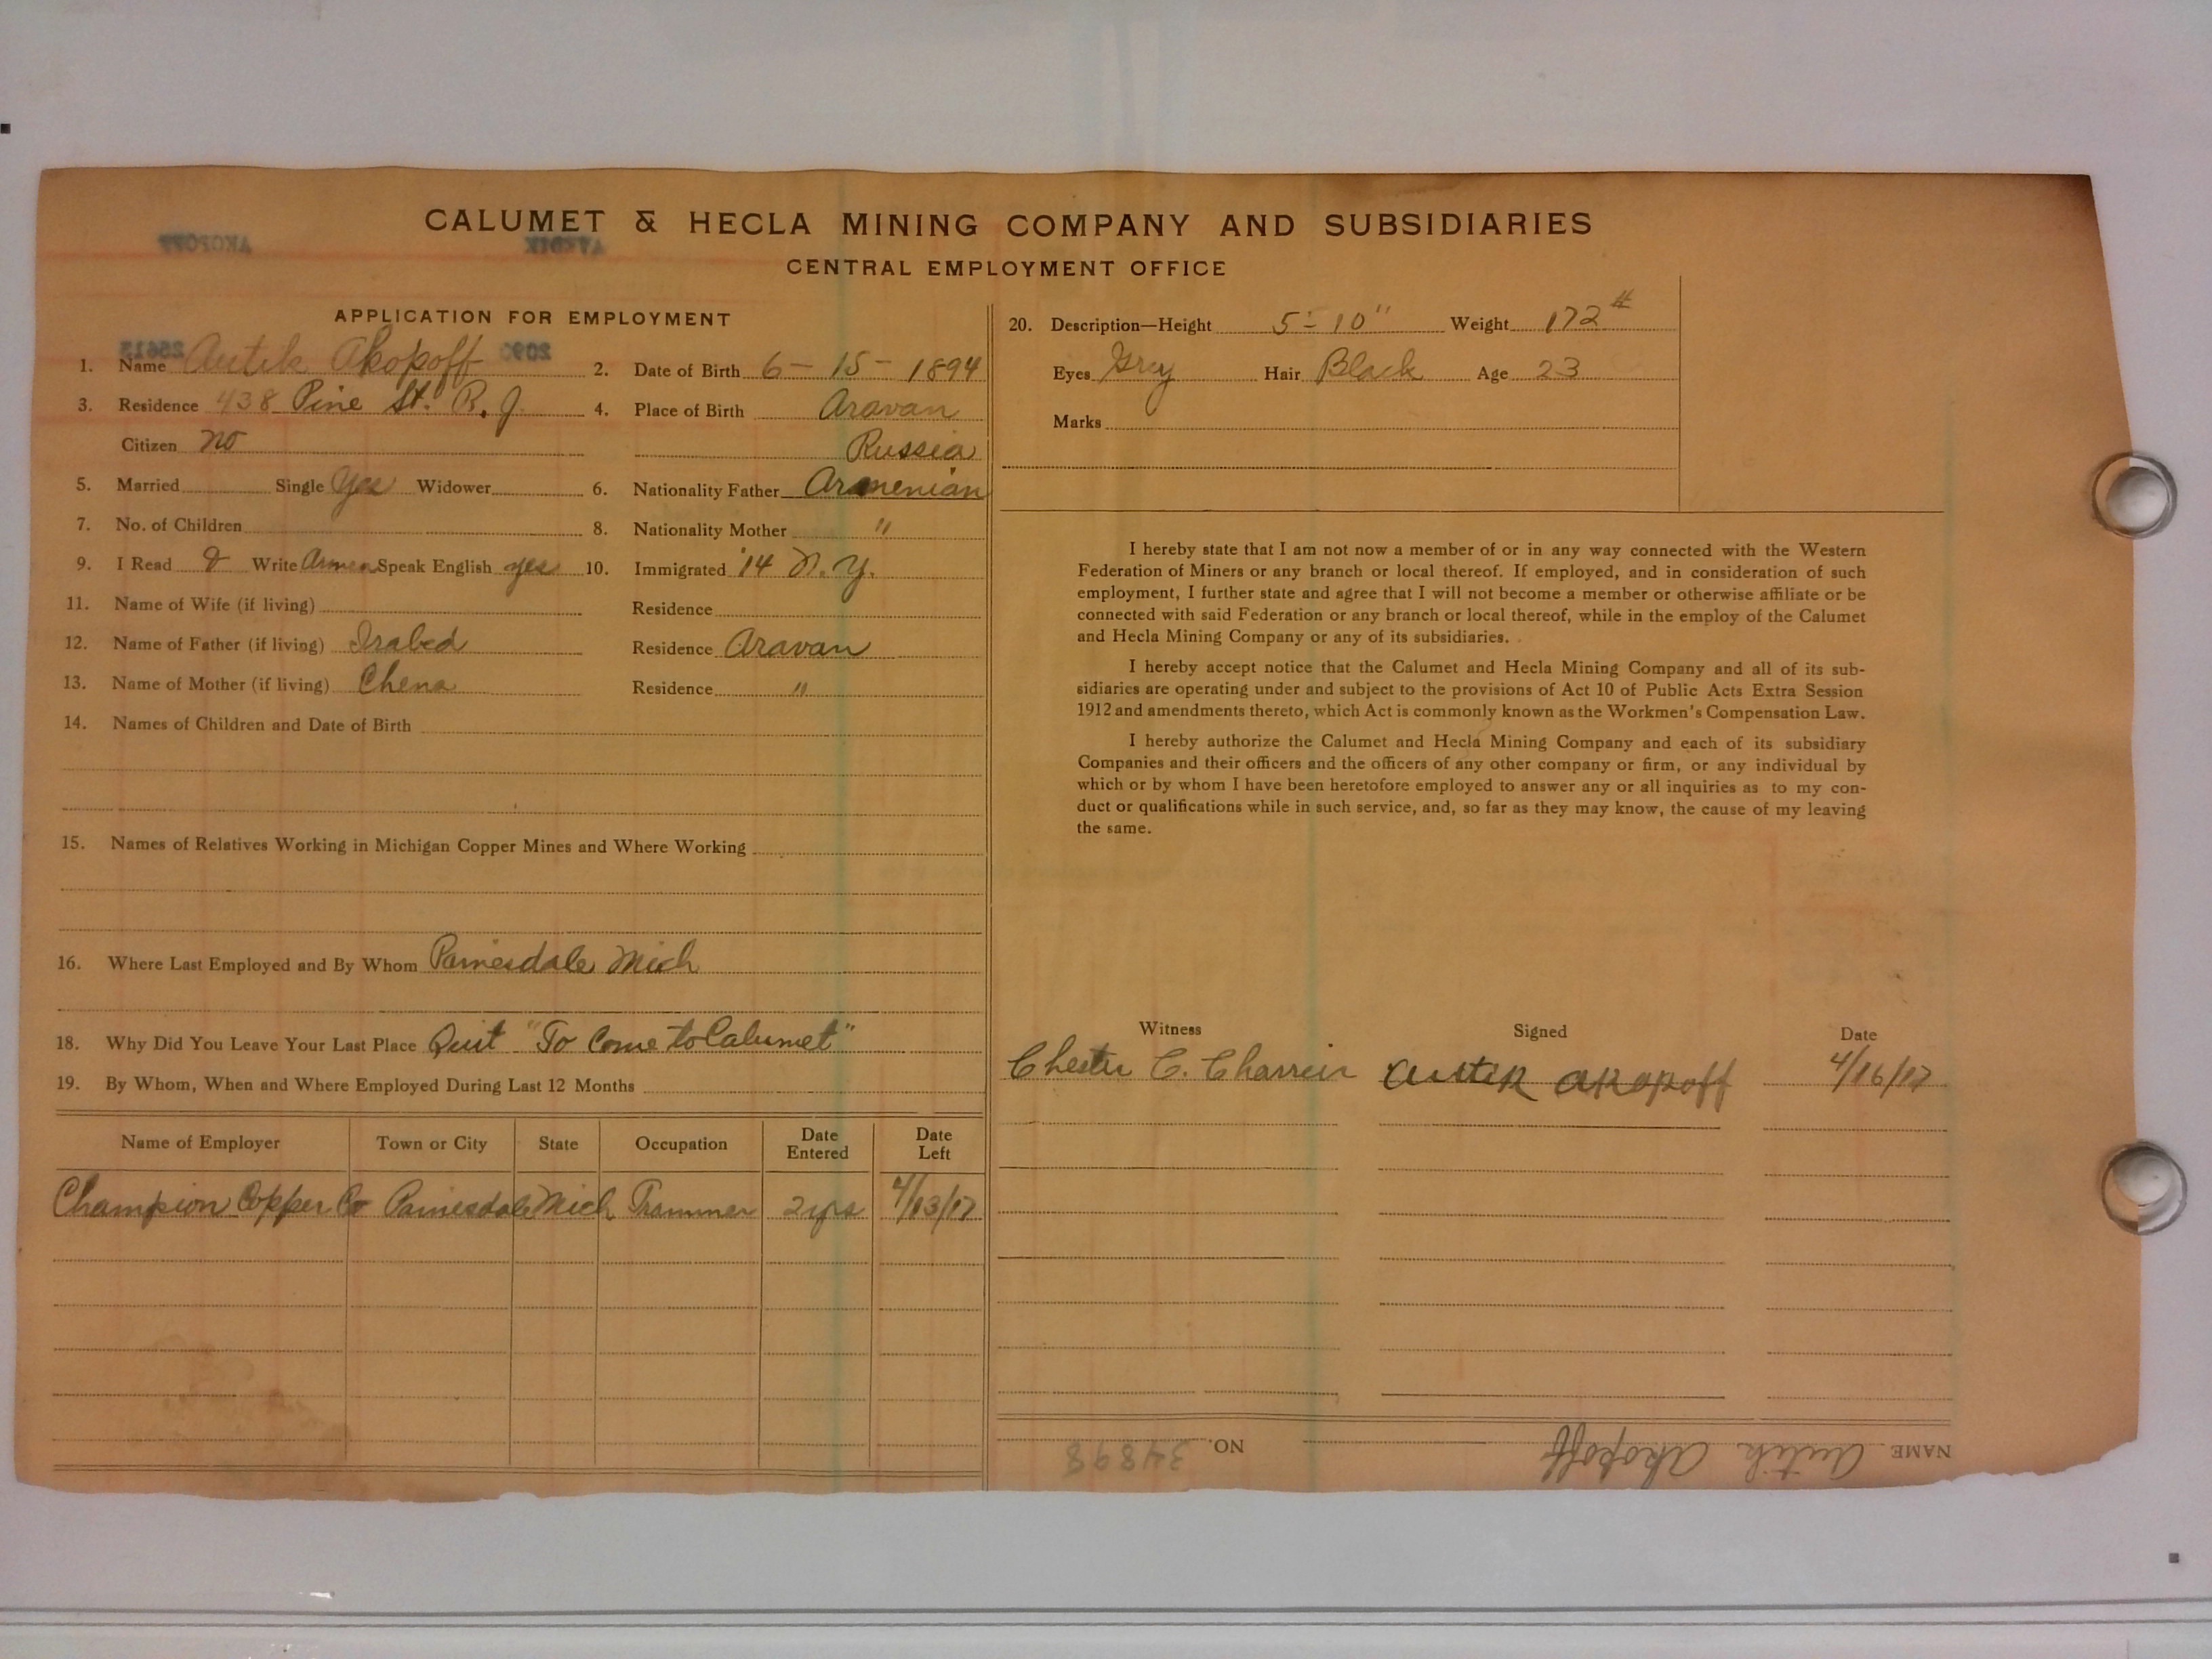 CALUMET & HECLA MINING COMPANY AND SUBSIDIARIES
AKOPOFF
CENTRAL EMPLOYMENT OFFICE
APPLICATION FOR EMPLOYMENT
25613 2090
1. Name Autik Akopoff
2. Date of Birth 6-15-1894
3. Residence 438 Pine St. R. J.
4. Place of Birth Aravan
Citizen no
Russia
5. Married Single Yes Widower
6. Nationality Father Armenian
7. No. of Children
8. Nationality Mother "
9. I Read & Write Armen Speak English yes
10. Immigrated '14 N.Y.
11. Name of Wife (if living) Residence
12. Name of Father (if living) Irabed Residence Aravan
13. Name of Mother (if living) Chena Residence "
14. Names of Children and Date of Birth
15. Names of Relatives Working in Michigan Copper Mines and Where Working
16. Where Last Employed and By Whom Painesdale Mich
18. Why Did You Leave Your Last Place Quit "To Come to Calumet"
19. By Whom, When and Where Employed During Last 12 Months
Name of Employer Town or City State Occupation Date Entered Date Left
Champion Copper Co Painesdale Mich Trammer 2 yrs 4/13/17
20. Description—Height 5-10" Weight 172#
Eyes Grey Hair Black Age 23
Marks
I hereby state that I am not now a member of or in any way connected with the Western
Federation of Miners or any branch or local thereof. If employed, and in consideration of such
employment, I further state and agree that I will not become a member or otherwise affiliate or be
connected with said Federation or any branch or local thereof, while in the employ of the Calumet
and Hecla Mining Company or any of its subsidiaries.
I hereby accept notice that the Calumet and Hecla Mining Company and all of its sub-
sidiaries are operating under and subject to the provisions of Act 10 of Public Acts Extra Session
1912 and amendments thereto, which Act is commonly known as the Workmen's Compensation Law.
I hereby authorize the Calumet and Hecla Mining Company and each of its subsidiary
Companies and their officers and the officers of any other company or firm, or any individual by
which or by whom I have been heretofore employed to answer any or all inquiries as to my con-
duct or qualifications while in such service, and, so far as they may know, the cause of my leaving
the same.
Witness Signed Date
Chester C. Autik Akopoff 4/16/17
NAME Autik Akopoff NO. 34898